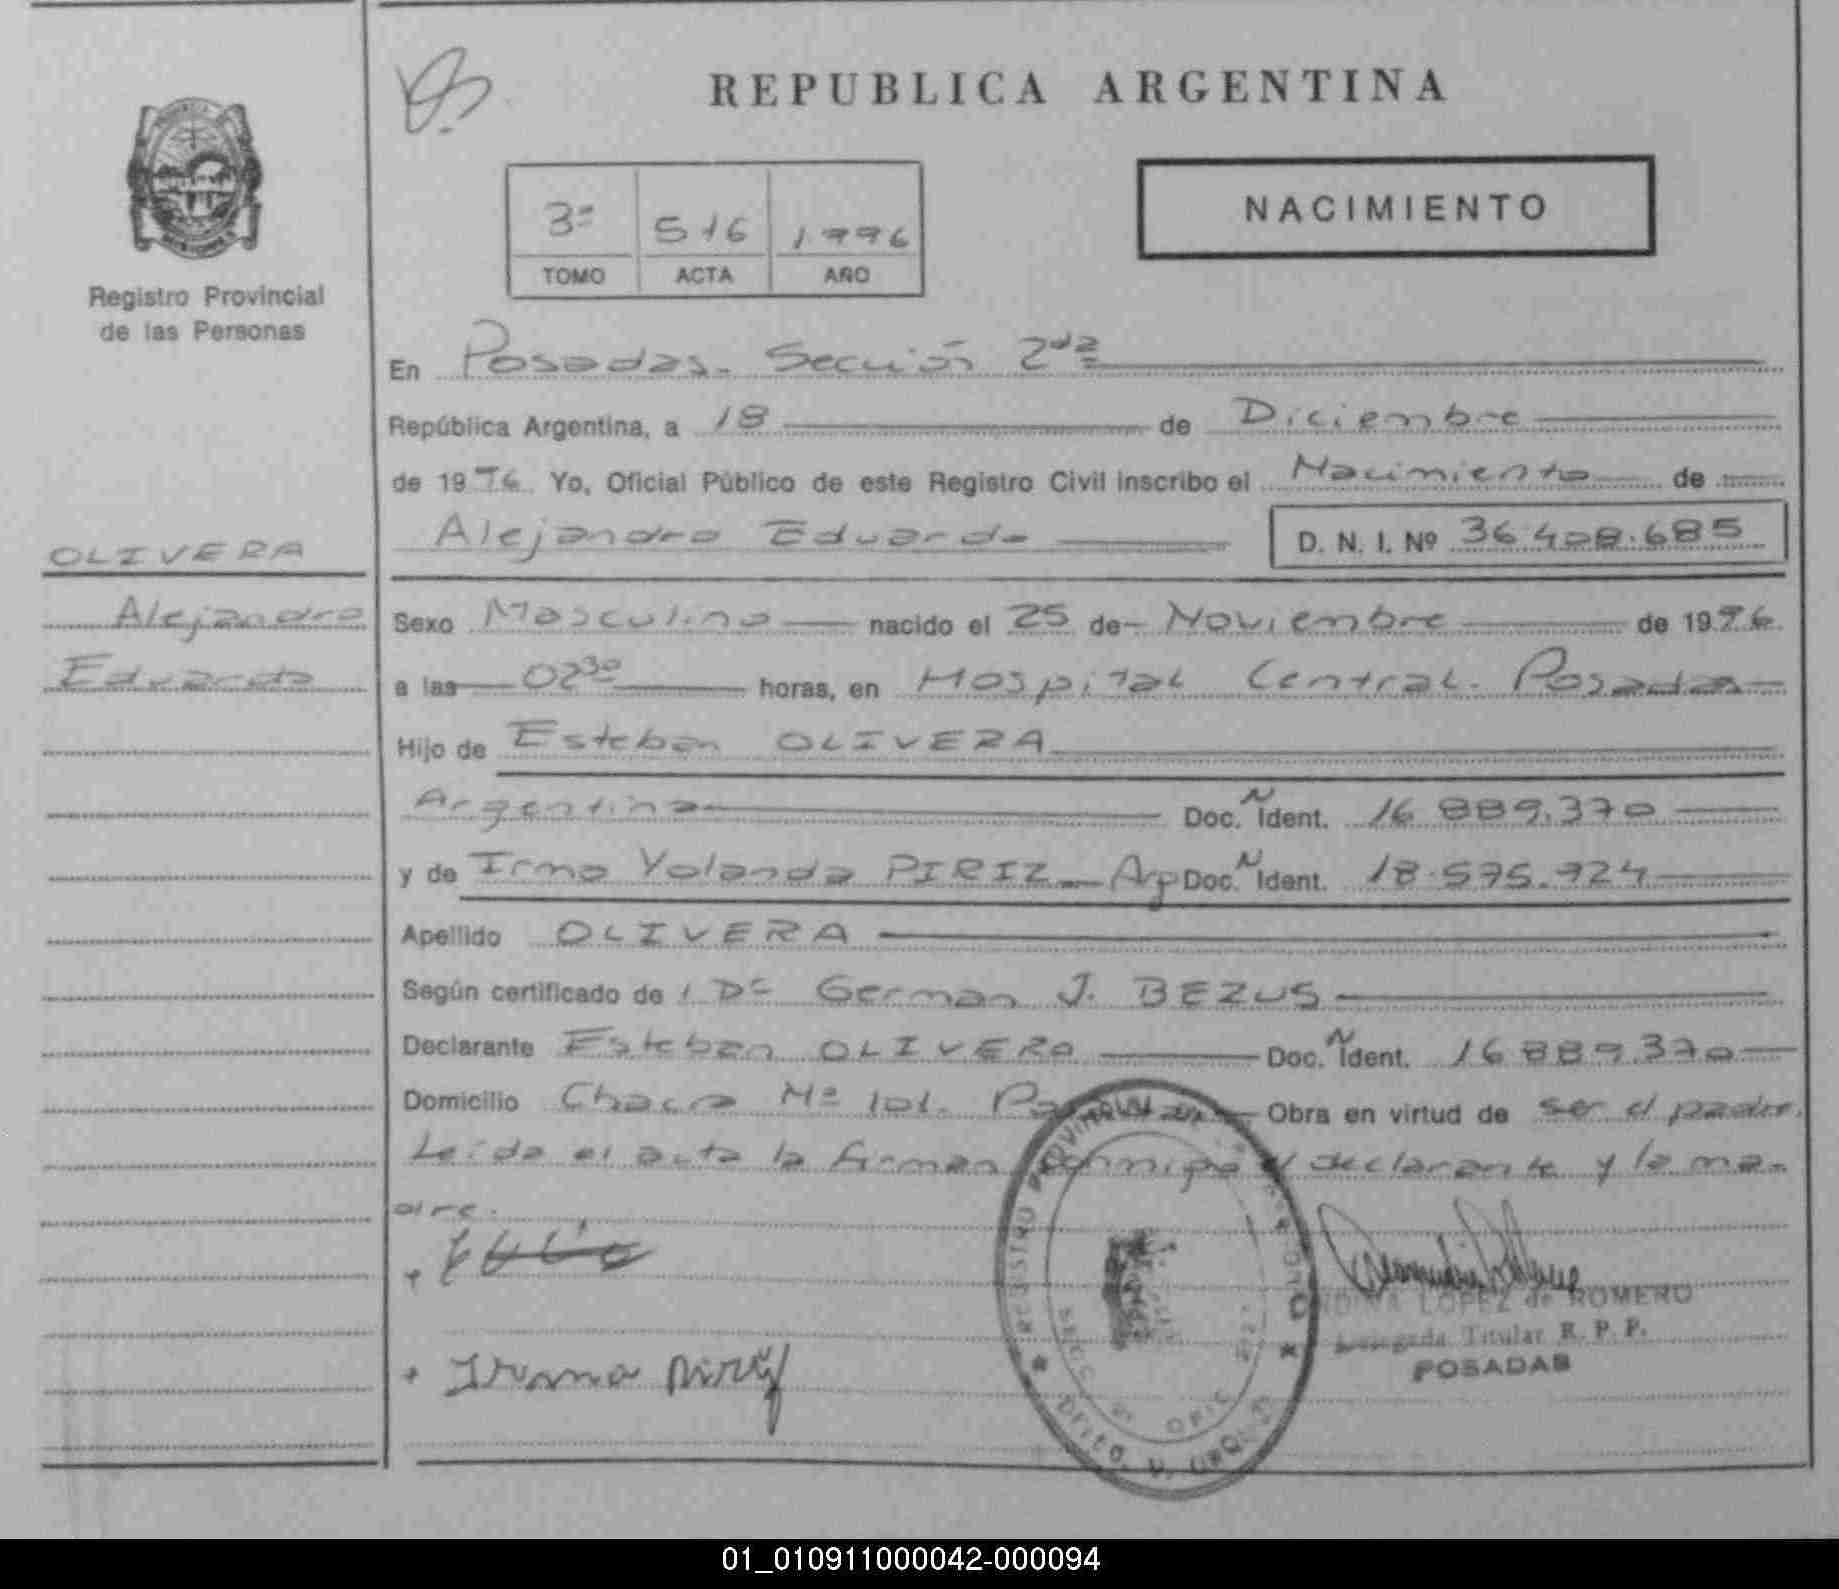 REPUBLICA ARGENTINA
3ª 516 1996
TOMO ACTA AÑO
NACIMIENTO
Registro Provincial
de las Personas
En Posadas. Sección 2da
República Argentina, a 18 de Diciembre
de 1996 Yo, Oficial Público de este Registro Civil inscribo el Nacimiento de
Alejandro Eduardo D. N. I. Nº 36.408.685
OLIVERA
Alejandro
Eduardo
Sexo Masculino nacido el 25 de Noviembre de 1996
a las 02³⁰ horas, en Hospital Central. Posadas
Hijo de Esteban OLIVERA
Argentina Doc. Ñ Ident. 16.889.370
y de Irma Yolanda PIRIZ Arg Doc. Ñ Ident. 18.575.724
Apellido OLIVERA
Según certificado de : Dr German J. BEZUS
Declarante Esteban OLIVERA Doc. Ñ Ident. 16.889.370
Domicilio Chacra Nº 101. Posadas Obra en virtud de ser el padre.
Leída el acta la firman conmigo el declarante y la ma-
dre.
Irma Piriz
LOPEZ de ROMERO
Titular R. P. P.
POSADAS
01_010911000042-000094